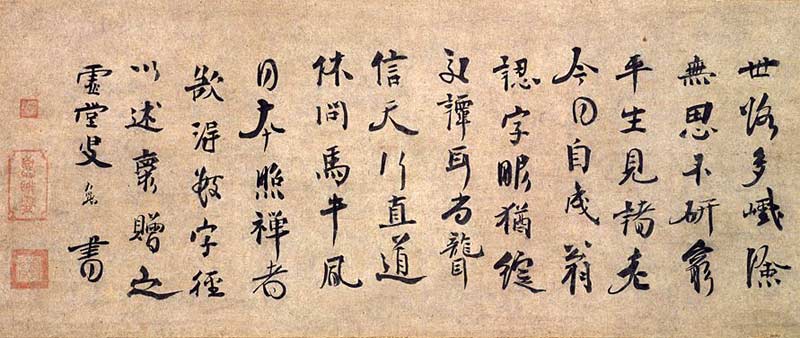 世路多巇嶮
無思不研窮
平生見諸老
今日自成翁
認字眼猶綻
交譚耳尚聾
信天行直道
休問馬牛風
日本照禅者
欲得數字徑
以述褱贈之
虚堂叟 書